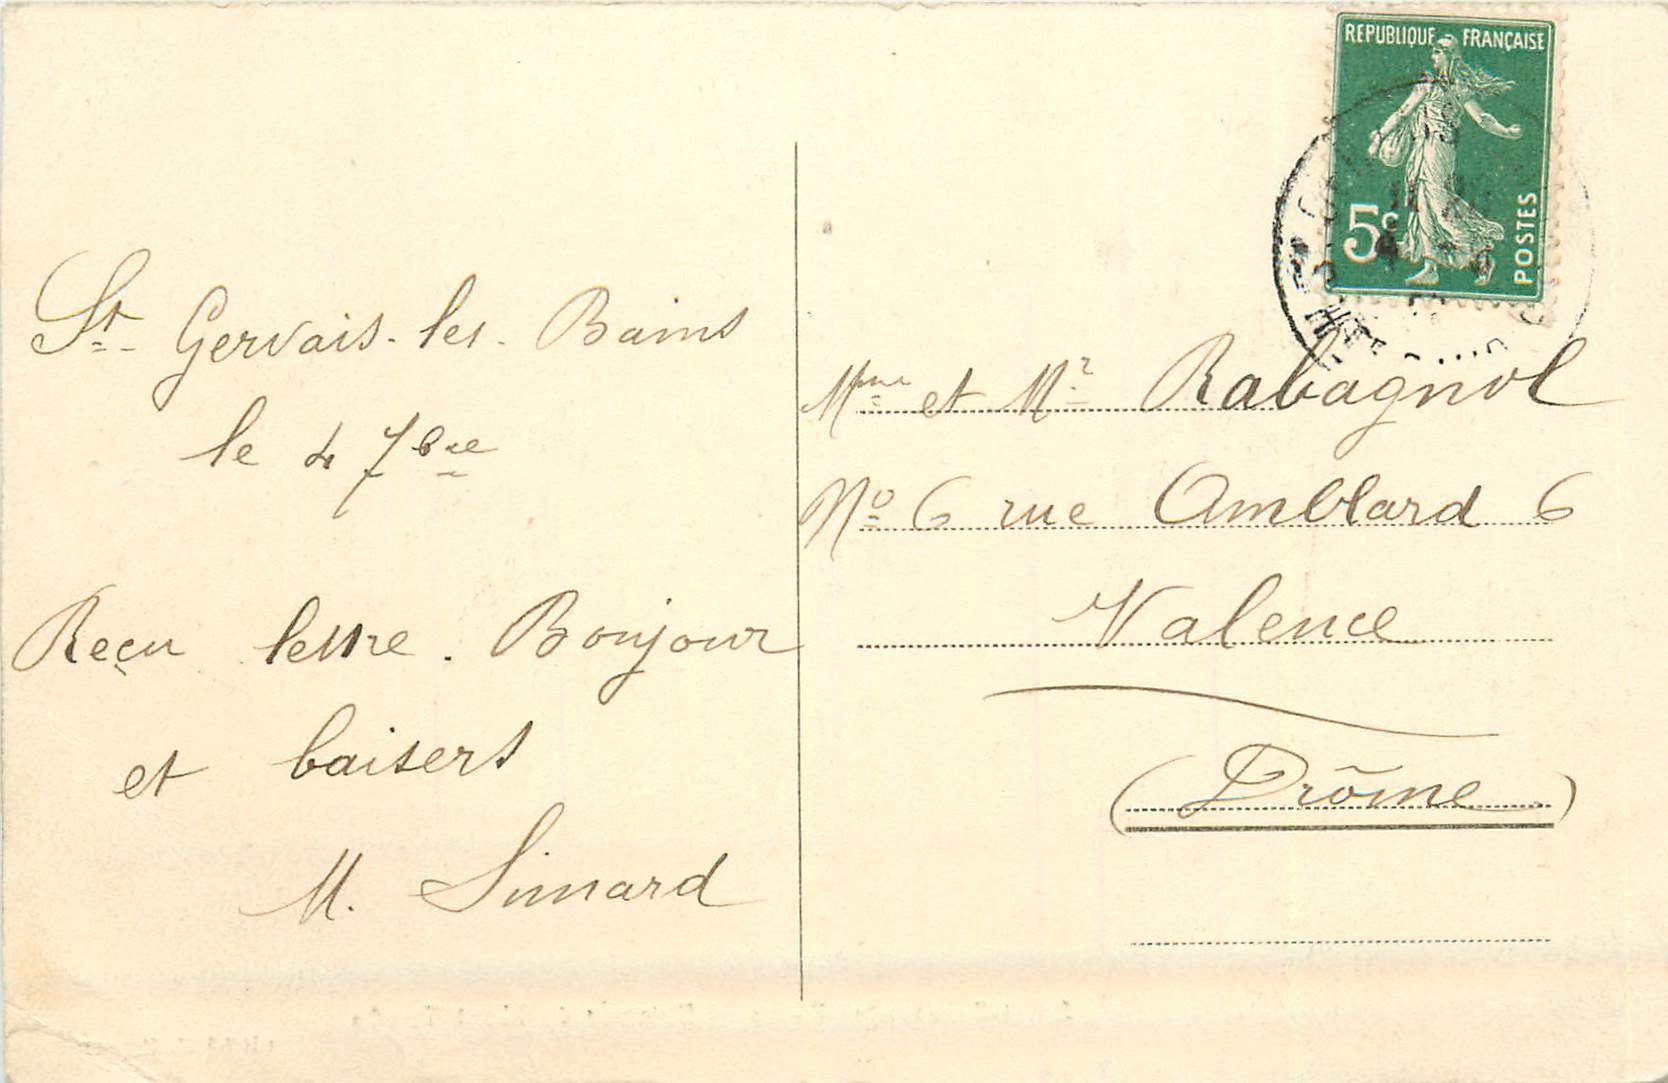 St Gervais-les-Bains
le 4 7bre
Reçu lettre. Bonjour
et baisers
M. Simard
REPUBLIQUE FRANÇAISE
5c
POSTES
Mme et Mr Rabagnol
No 6 rue Amblard 6
Valence
(Drôme)